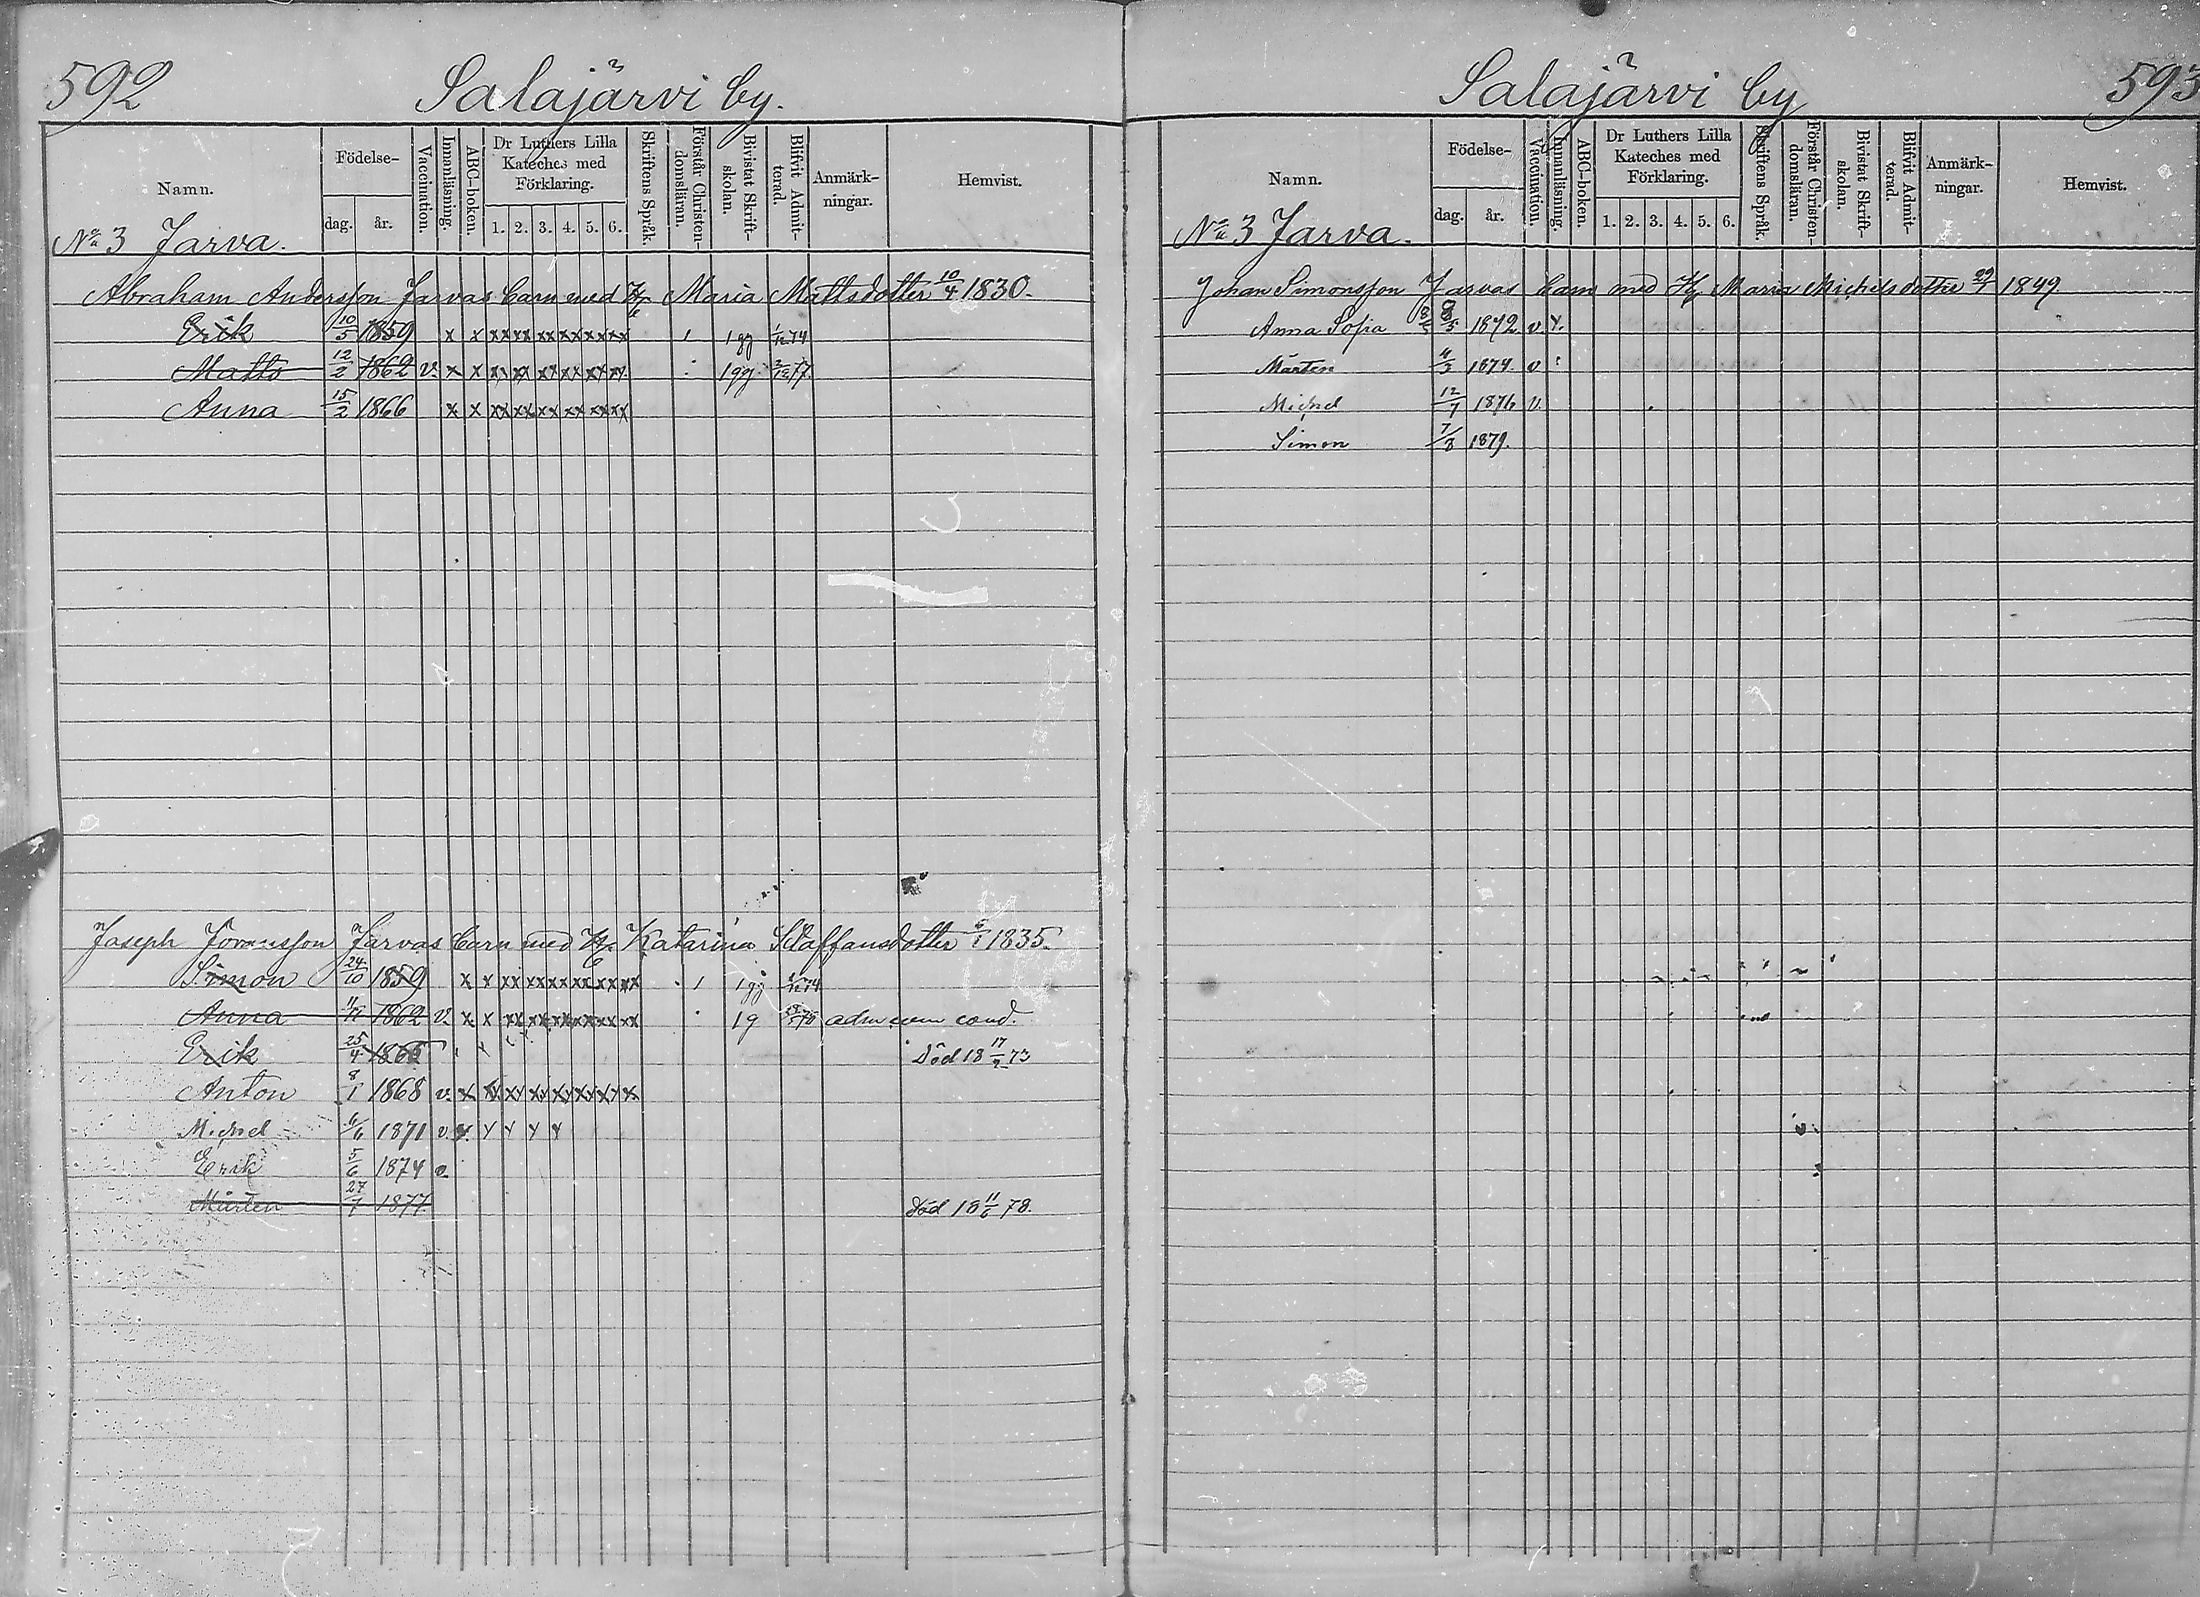 592
Salajärvi by.
Namn.
Födelse-
dag.
år.
Vaccination.
Innanläsning.
ABC-boken.
Dr Luthers Lilla
Kateches med
Förklaring.
1. 2. 3. 4. 5. 6.
Skriftens Språk.
Förstår Christen-
domsläran.
Bivistat Skrift-
skolan.
Blifvit Admit-
terad.
Anmärk-
ningar.
Hemvist.
No 3 Jarva.
Abraham Andersson Jarvas barn med H. Maria Mattsdotter 10/4 1830.
Erik 10/5 1859 x x xx xx xx xx xx xx 1 1 gg 1/12 74
Matts 12/2 1862 v. x x xx xx xx xx xx xx 1 gg. 2/12 77.
Anna 15/2 1866 x x xx xx xx xx xx xx
Joseph Göransson Jarvas barn med H. Katarina Staffansdotter 6/1 1835.
Simon 24/10 1859 x x xx xx xx xx xx xx 1 1 gg 1/12 74
Anna 1862 v. x x xx xx xx xx xx xx 1 g adm cum cond.
Erik 25/4 1866 Död 18 17/2 73
Anton 8/1 1868 v. x
Michel 6/6 1871 v. y. y y y y
Erik 5/6 1874 v.
Mårten 27/7 1877 död 18 11/6 78.
593
Salajärvi by
Namn.
Födelse-
dag.
år.
Vaccination.
Innanläsning.
ABC-boken.
Dr Luthers Lilla
Kateches med
Förklaring.
1. 2. 3. 4. 5. 6.
Skriftens Språk.
Förstår Christen-
domsläran.
Bivistat Skrift-
skolan.
Blifvit Admit-
terad.
Anmärk-
ningar.
Hemvist.
No 3 Jarva.
Johan Simonsson Jarvas barn med H. Maria Michelsdotter 29/7 1849
Anna Sofia 8/5 1872 v. y.
Mårten 11/3 1874. v
Michel 12/7 1876 v.
Simon 7/8 1879.